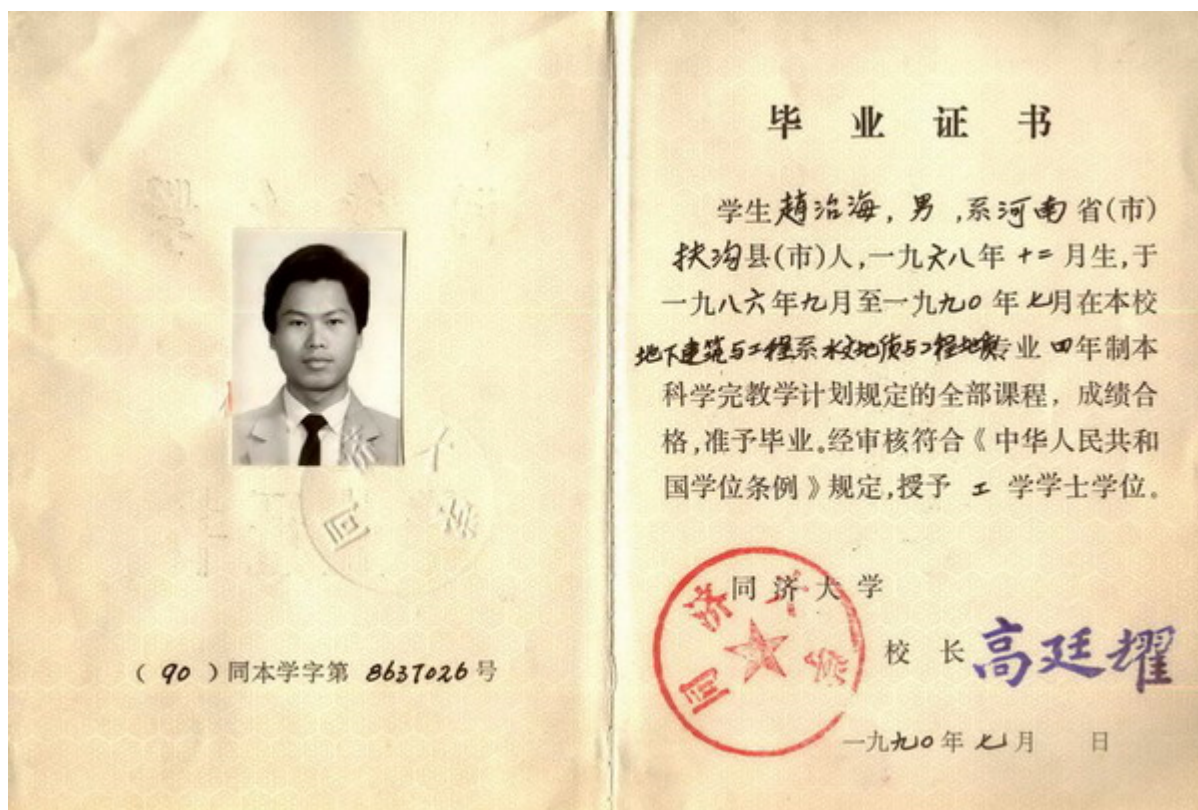 (90)同本学字第 8637026 号
毕业证书
学生趙治海,男,系河南省(市)
扶沟县(市)人,一九六八年十二月生,于
一九八六年九月至一九九〇年七月在本校
地下建筑与工程系水文地质与工程地质专业四年制本
科学完教学计划规定的全部课程,成绩合
格,准予毕业。经审核符合《中华人民共和
国学位条例》规定,授予 工 学学士学位。
同济大学
校长 高廷耀
一九九〇年七月 日
同济大学
同济大学